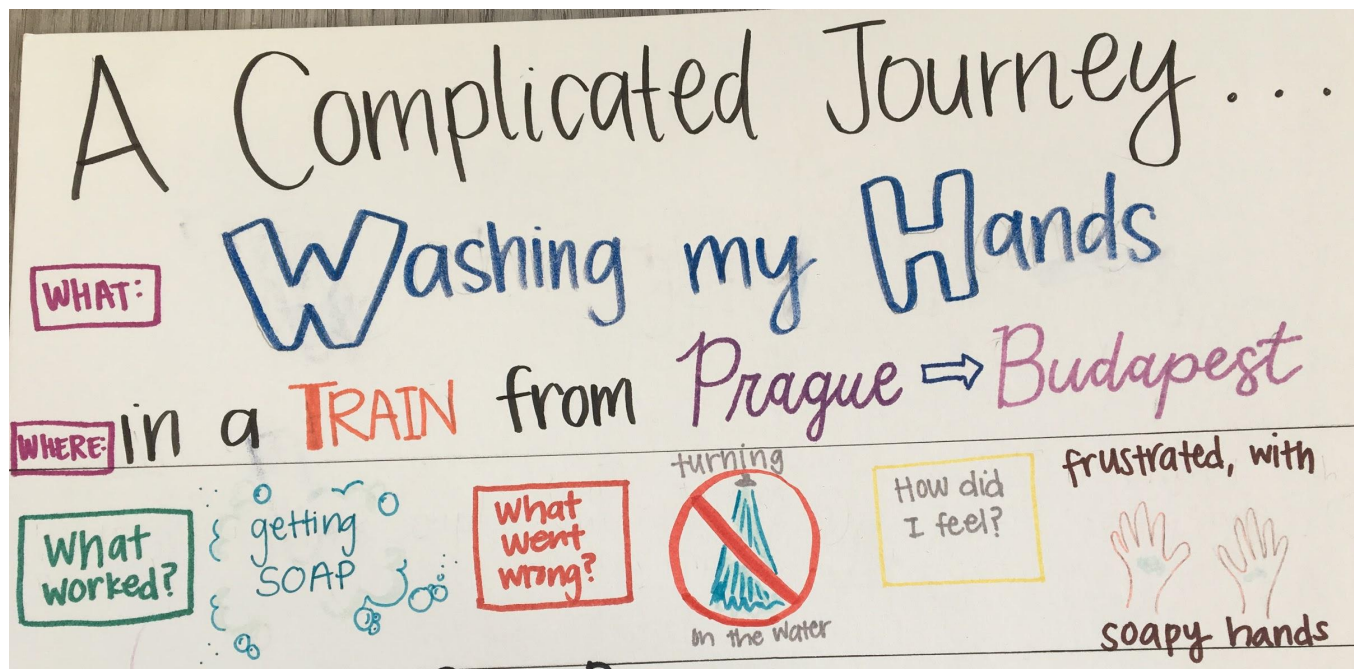 A Complicated Journey...
WHAT:
Washing my Hands
WHERE:
in a TRAIN from Prague ⇨ Budapest
What
worked?
getting
SOAP
What
went
wrong?
turning
on the water
How did
I feel?
frustrated, with
soapy hands